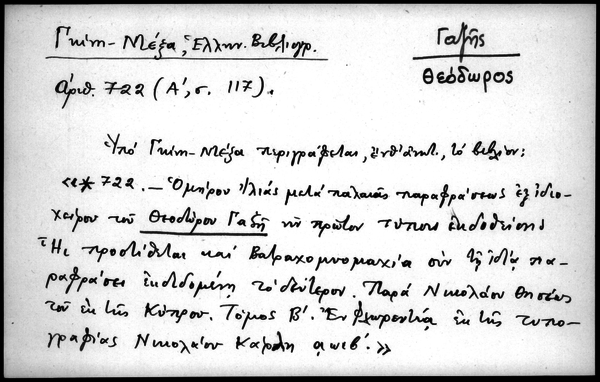 Γκίνη - Μέξα, Ἑλλην. Βιβλιογρ.
Γαζῆς
Θεόδωρος
Ἀριθ. 722 (Α΄, σ. 117).
Ὑπό Γκίνη - Μέξα περιγράφεται, , τό βιβλίον:
«* 722. — Ὁμήρου Ἰλιάς μετά παλαιᾶς παραφράσεως ἐξ ἰδιο-
χείρου τοῦ Θεοδώρου Γαζῆ νῦν πρῶτον τύποις ἐκδοθεῖσα·
Ἧι προστίθεται καί Βατραχομυομαχία σύν τῇ ἰδίᾳ πα-
ραφράσει ἐκδιδομένη τό δεύτερον. Παρά Νικολάου Θησέως
τοῦ ἐκ τῆς Κύπρου. Τόμος Β΄. Ἐν Φλωρεντίᾳ ἐκ τῆς τυπο-
γραφίας Νικολάου Κάρλη αωιβ΄.»